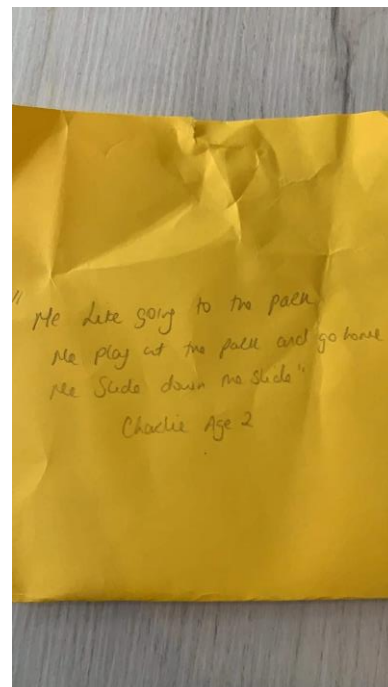 "Me Like going to the park
Me play at the park and go home
Me Slide down the slide"
Charlie Age 2